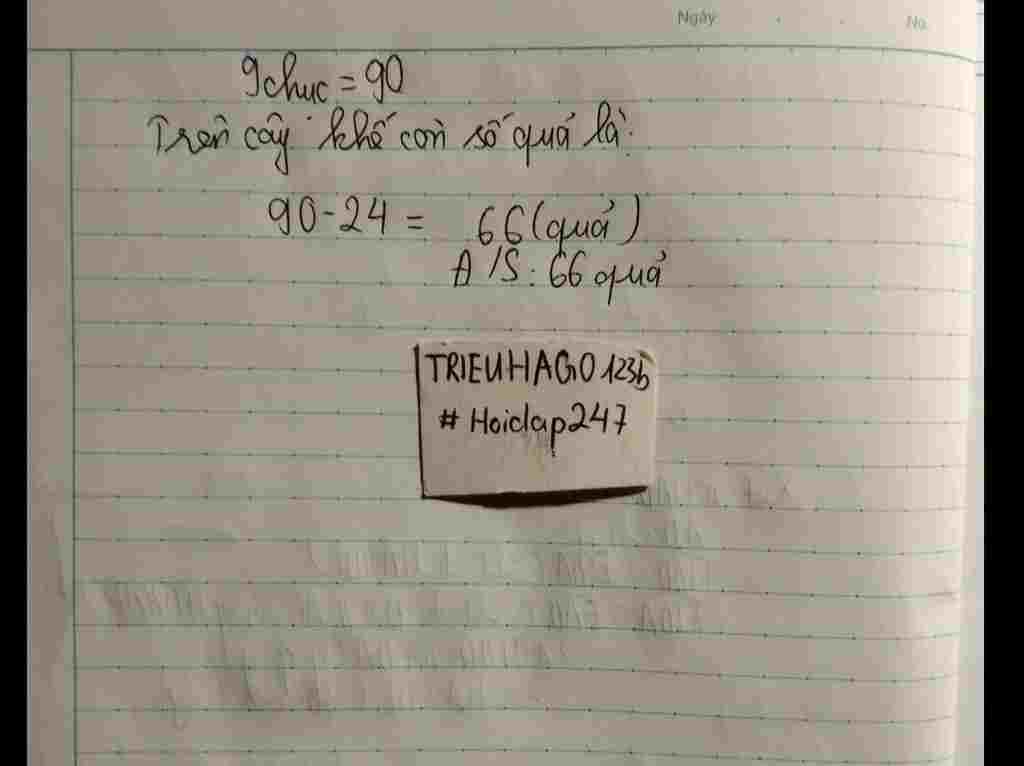 Ngày
No.
9chục = 90
Trên cây khế còn số quả là:
90 - 24 = 66 (quả)
Đ/S: 66 quả
TRIEUHAGO123b
# Hoidap247